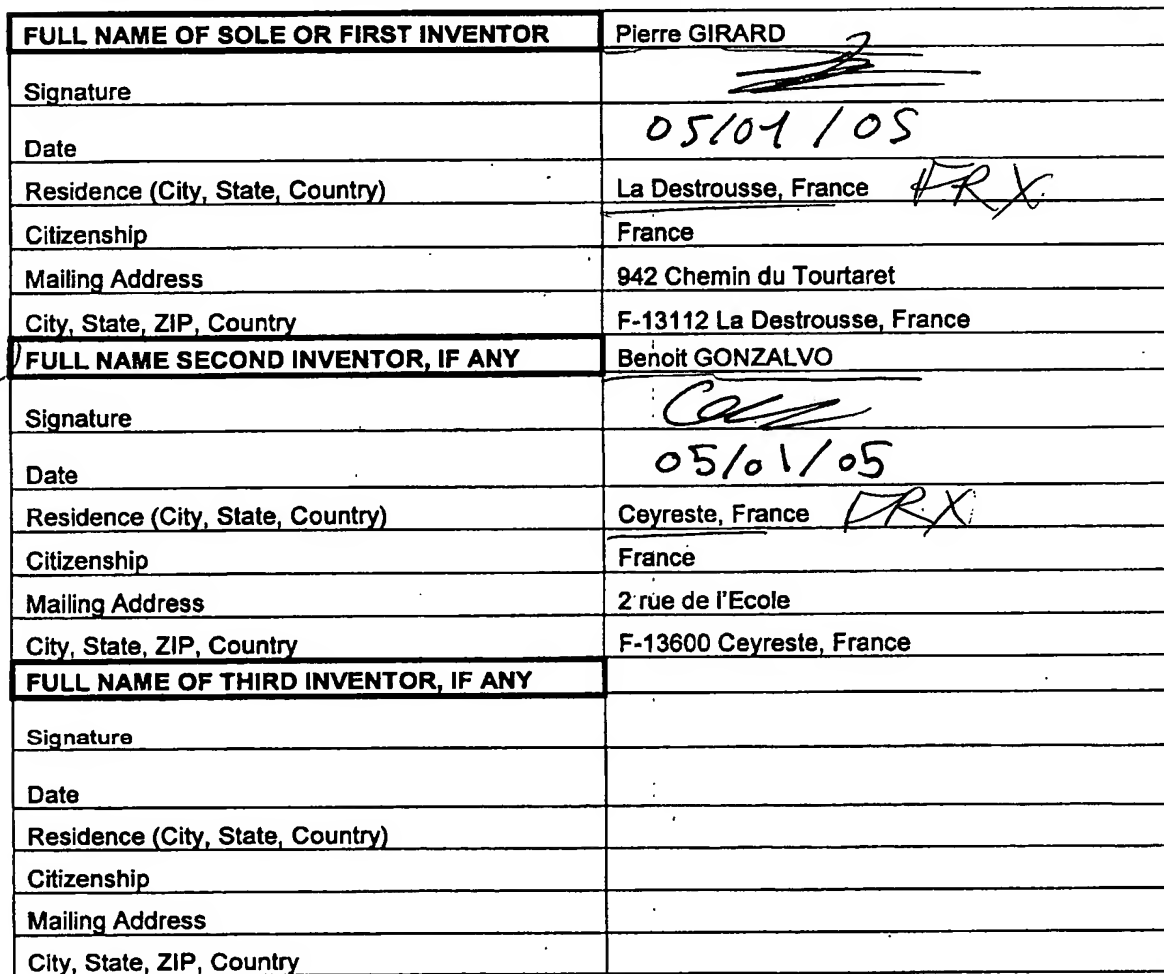 FULL NAME OF SOLE OR FIRST INVENTOR Pierre GIRARD
Signature
Date 05/01/05
Residence (City, State, Country) La Destrousse, France FRX
Citizenship France
Mailing Address 942 Chemin du Tourtaret
City, State, ZIP, Country F-13112 La Destrousse, France
FULL NAME SECOND INVENTOR, IF ANY Benoit GONZALVO
Signature
Date 05/01/05
Residence (City, State, Country) Ceyreste, France FRX
Citizenship France
Mailing Address 2 rue de l'Ecole
City, State, ZIP, Country F-13600 Ceyreste, France
FULL NAME OF THIRD INVENTOR, IF ANY
Signature
Date
Residence (City, State, Country)
Citizenship
Mailing Address
City, State, ZIP, Country